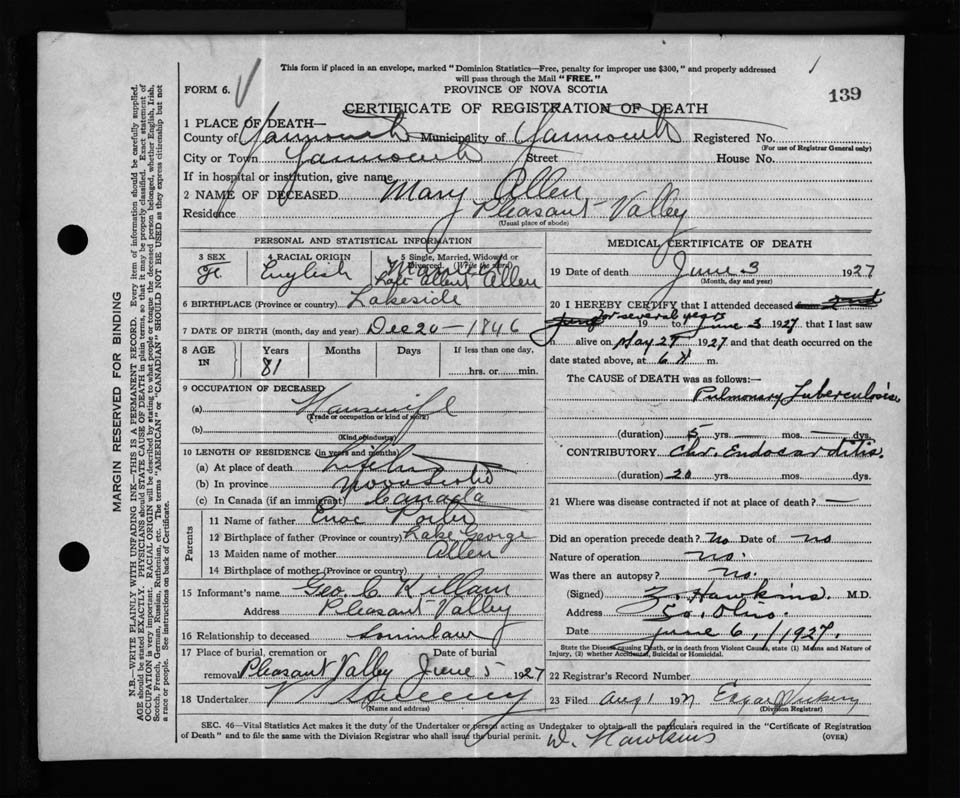 This form if placed in an envelope, marked "Dominion Statistics—Free, penalty for improper use $300," and properly addressed
will pass through the Mail "FREE."
FORM 6.
PROVINCE OF NOVA SCOTIA
139
CERTIFICATE OF REGISTRATION OF DEATH
1 PLACE OF DEATH—
County of Yarmouth Municipality of Yarmouth Registered No.
(For use of Registrar General only)
City or Town Yarmouth Street House No.
If in hospital or institution, give name
2 NAME OF DECEASED Mary Allen
Residence Pleasant Valley
(Usual place of abode)
PERSONAL AND STATISTICAL INFORMATION
3 SEX 4 RACIAL ORIGIN 5 Single, Married, Widowed or
Divorced. (Write the word)
F English Married
Albert Allen
6 BIRTHPLACE (Province or country) Lakeside
7 DATE OF BIRTH (month, day and year) Dec 20 — 1846
8 AGE IN Years Months Days If less than one day,
81 hrs. or min.
9 OCCUPATION OF DECEASED
(a) Housewife
(Trade or occupation or kind of work)
(b)
(Kind of industry)
10 LENGTH OF RESIDENCE (in years and months)
(a) At place of death Lifetime
(b) In province Nova Scotia
(c) In Canada (if an immigrant) Canada
Parents
11 Name of father Enoc Porter
12 Birthplace of father (Province or country) Lake George
13 Maiden name of mother Allen
14 Birthplace of mother (Province or country)
15 Informant's name Geo. C. Killam
Address Pleasant Valley
16 Relationship to deceased Soninlaw
17 Place of burial, cremation or Date of burial
removal Pleasant Valley June 5 1927
18 Undertaker V S Sweeny
(Name and address)
MEDICAL CERTIFICATE OF DEATH
19 Date of death June 3 1927
(Month, day and year)
20 I HEREBY CERTIFY that I attended deceased from 2nd
June for several years 19 to June 3 1927, that I last saw
h alive on May 29 1927 and that death occurred on the
date stated above, at 6 m.
The CAUSE OF DEATH was as follows:—
Pulmonary Tuberculosis
(duration) 5 yrs. — mos. — dys.
CONTRIBUTORY Chr. Endocarditis.
(duration) 20 yrs. mos. dys.
21 Where was disease contracted if not at place of death? —
Did an operation precede death? No Date of no
Nature of operation no.
Was there an autopsy? no.
(Signed) Z. Hawkins. M.D.
Address So. Ohio.
Date June 6, 1927.
State the Disease causing Death, or in death from Violent Causes, state (1) Means and Nature of
Injury, (2) whether Accidental, Suicidal or Homicidal.
22 Registrar's Record Number
23 Filed Aug 1 1927 Edgar
(Division Registrar)
W. Hawkins
SEC. 46—Vital Statistics Act makes it the duty of the Undertaker or person acting as Undertaker to obtain all the particulars required in the "Certificate of Registration
of Death" and to file the same with the Division Registrar who shall issue the burial permit.
(OVER)
MARGIN RESERVED FOR BINDING
N.B.—WRITE PLAINLY WITH UNFADING INK—THIS IS A PERMANENT RECORD. Every item of information should be carefully supplied.
AGE should be stated EXACTLY. PHYSICIANS should STATE CAUSE OF DEATH in plain terms, so that it may be properly classified. Exact statement of
OCCUPATION is very important. RACIAL ORIGIN will be described by stating to what people or tongue the deceased person belonged, whether English, Irish,
Scotch, French, German, Russian, Ruthenian, etc. The terms "AMERICAN" or "CANADIAN" SHOULD NOT BE USED as they express citizenship but not
a race or people. See instructions on back of Certificate.